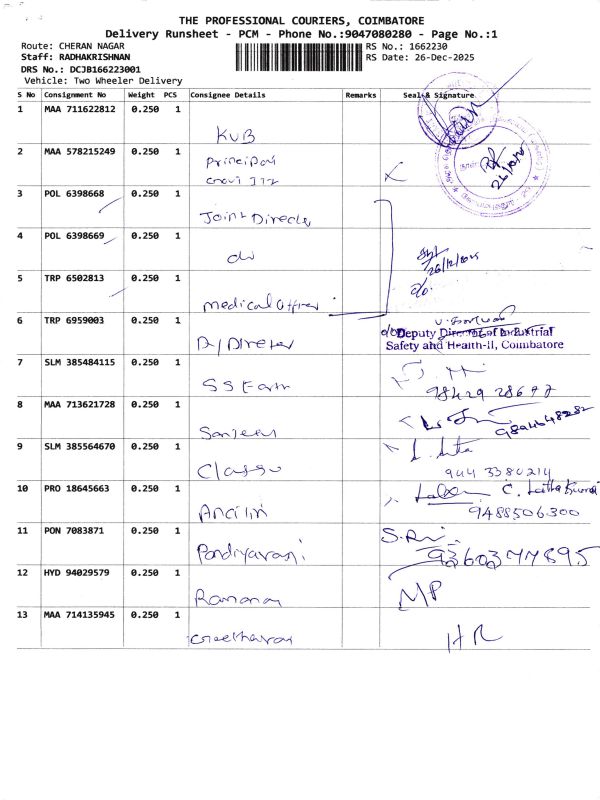 THE PROFESSIONAL COURIERS, COIMBATORE
Delivery Runsheet - PCM - Phone No.:9047080280 - Page No.:1
Route: CHERAN NAGAR
RS No.: 1662230
Staff: RADHAKRISHNAN
RS Date: 26-Dec-2025
DRS No.: DCJB166223001
Vehicle: Two Wheeler Delivery
S No Consignment No Weight PCS Consignee Details Remarks Seal & Signature
1 MAA 711622812 0.250 1 KVB
2 MAA 578215249 0.250 1 Principal
Govt ITI
3 POL 6398668 0.250 1 Joint Director
4 POL 6398669 0.250 1 do
26/12/2025
5 TRP 6502813 0.250 1 Medical Officer
6 TRP 6959003 0.250 1 Dy Director
Deputy Director of Industrial
Safety and Health-II, Coimbatore
7 SLM 385484115 0.250 1 SS Earth
8 MAA 713621728 0.250 1 Sanjeev
9894648282
9 SLM 385564670 0.250 1
944 3380214
10 PRO 18645663 0.250 1
9488506300
11 PON 7083871 0.250 1 Pandiyarasi
9360377895
12 HYD 94029579 0.250 1 Ramanan MP
13 MAA 714135945 0.250 1 HR